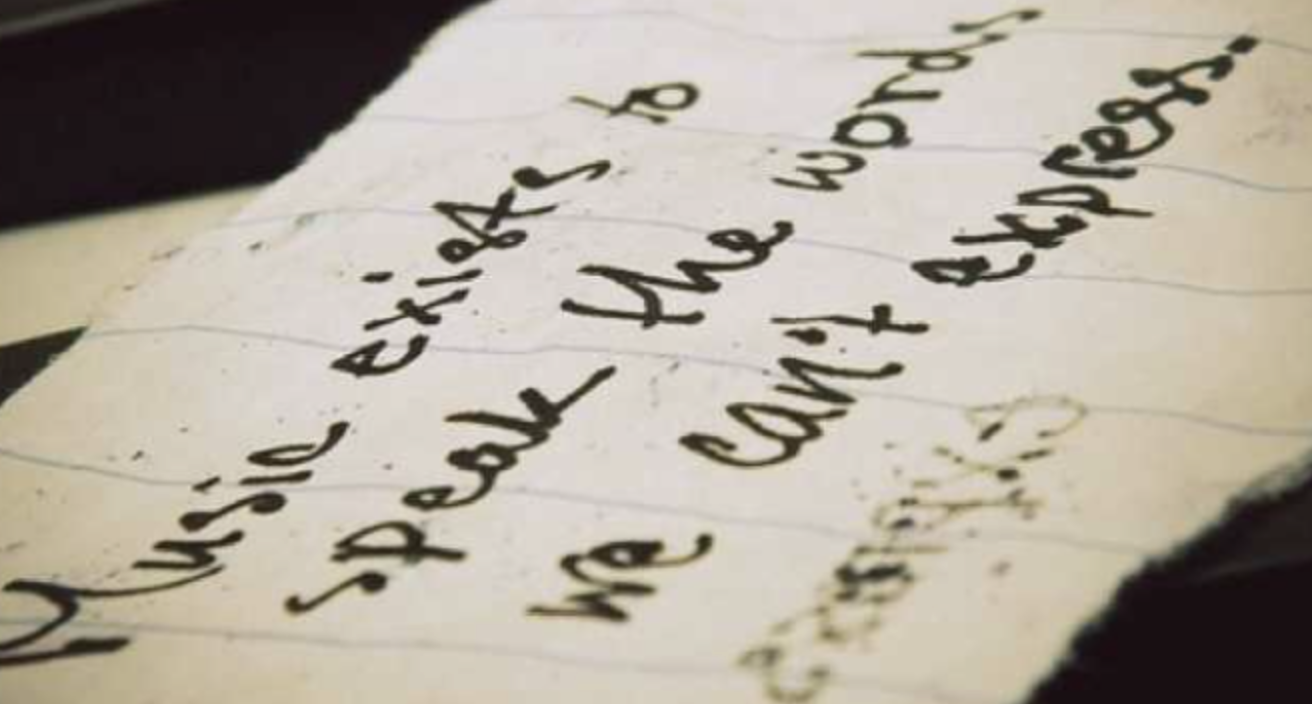 Music exists to
speak the words
we can't express.